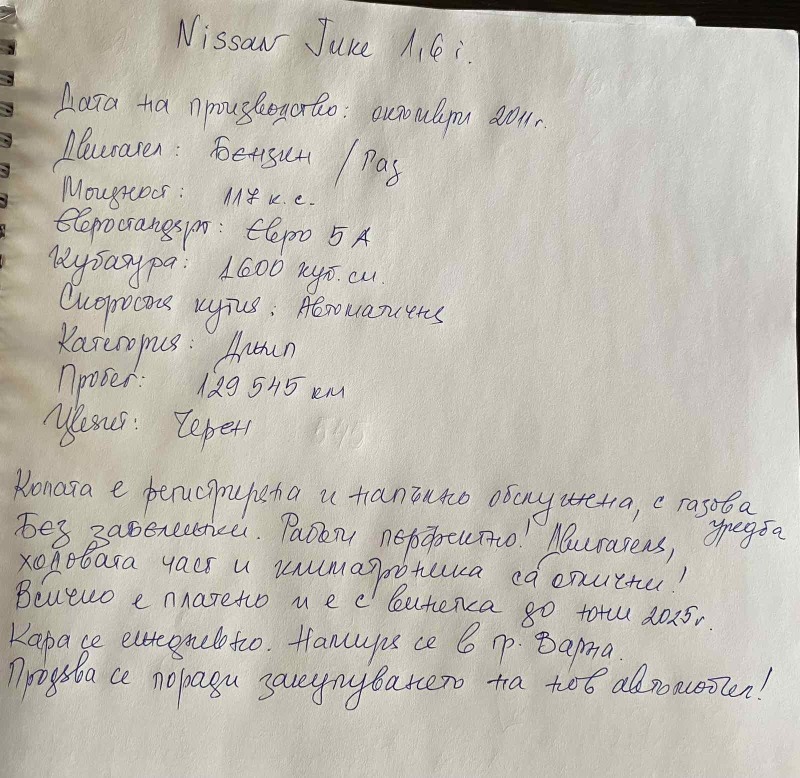 Nissan Juke 1,6 i.
Дата на производство: октомври 2011г.
Двигател: Бензин / Газ
Мощност: 117 к.с.
Евростандарт: Евро 5 А
Кубатура: 1600 куб. см.
Скоростна кутия: Автоматична
Категория: Джип
Пробег: 129 545 км
Цвят: Черен
Колата е регистрирана и напълно обслужена, с газова уредба
Без забележки. Работи перфектно! Двигателя,
ходовата част и климатроника са отлични!
Всичко е платено и е с винетка до юни 2025г.
Кара се ежедневно. Намира се в гр. Варна.
Продава се поради закупуването на нов автомобил!